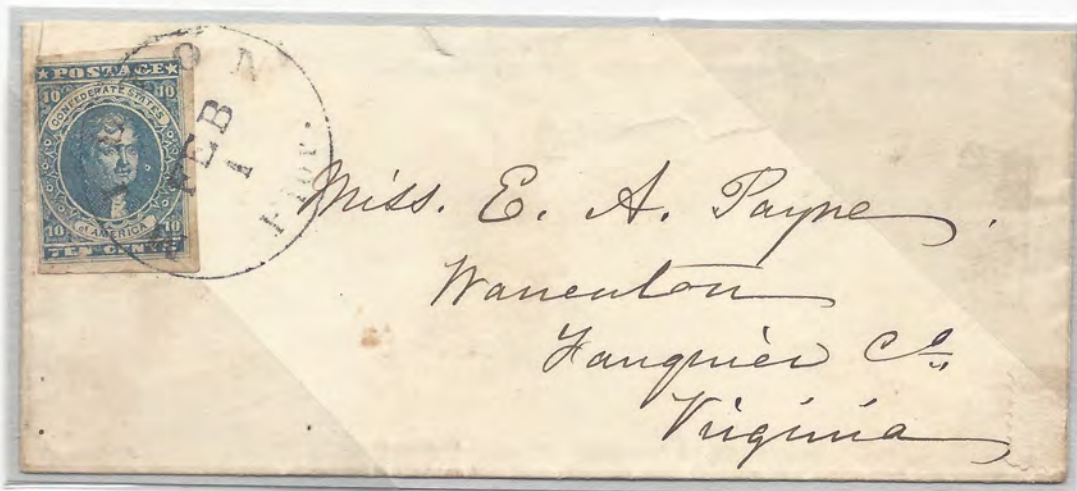 ★ POSTAGE ★
10 10
CONFEDERATE STATES
10 of AMERICA 10
TEN CENTS
FEB
1
Miss. E. A. Payne
Warrenton
Fauquier Co
Virginia